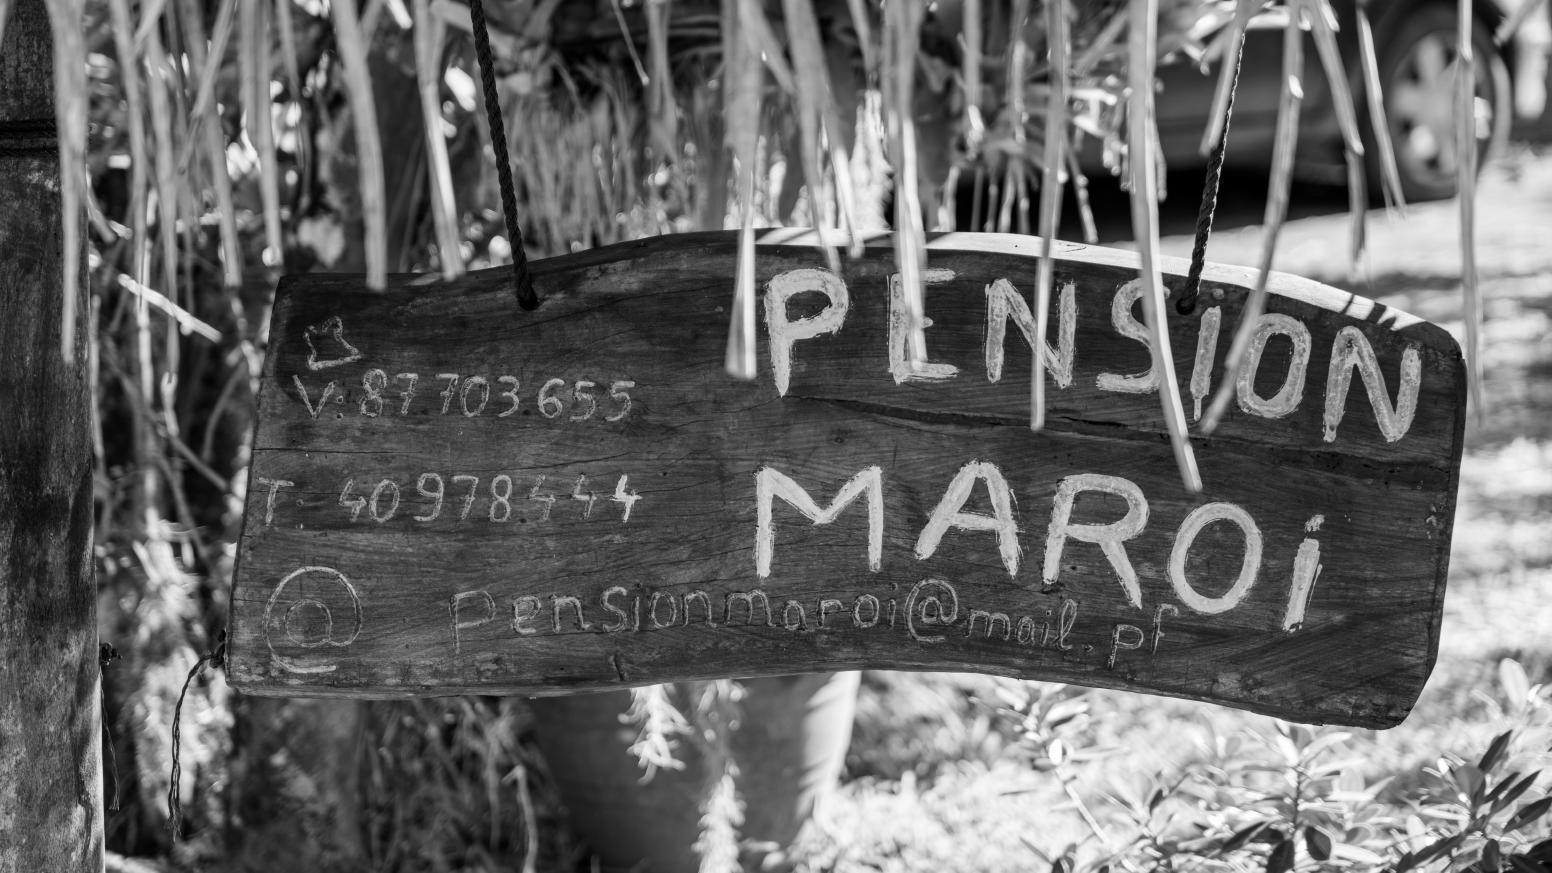 PENSION
MAROi
V: 87 703 655
T: 40978444
@ pensionmaroi@mail.pf